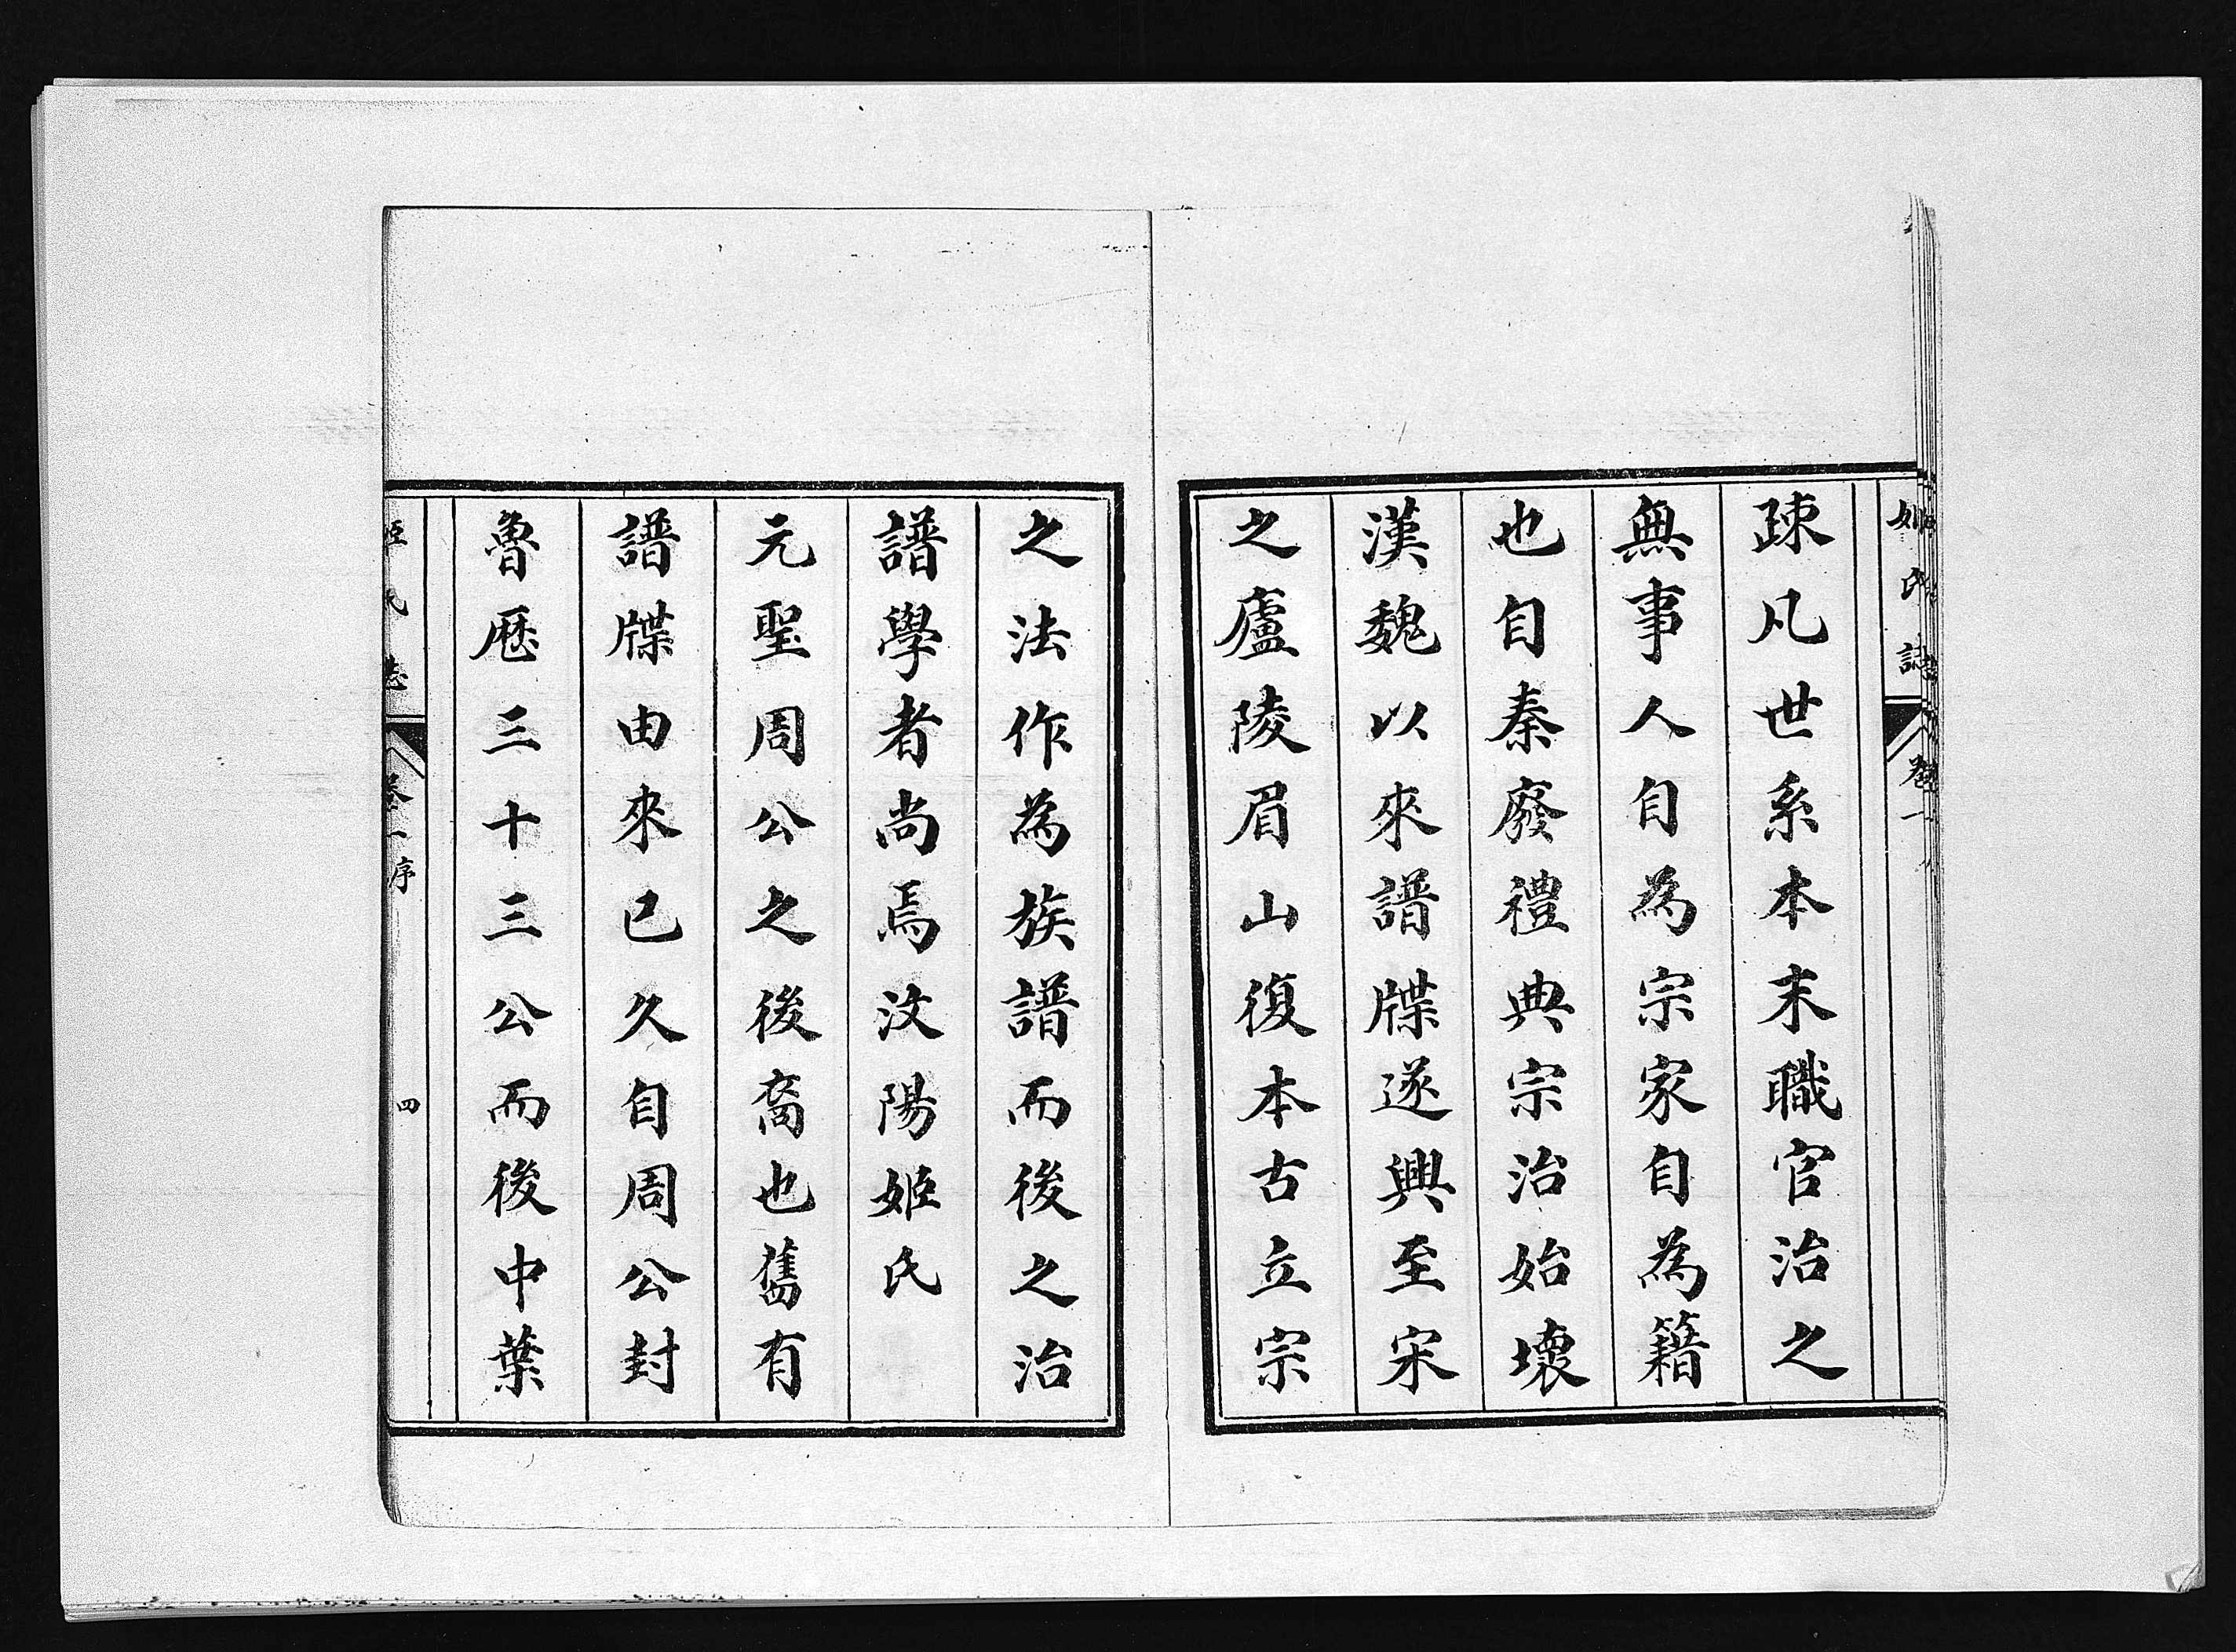 姬氏誌
卷一
疎凡世系本末職官治之
無事人自為宗家自為籍
也自秦廢禮典宗治始壞
漢魏以來譜牒遂興至宋
之廬陵眉山復本古立宗
之法作為族譜而後之治
譜學者尚焉汶陽姬氏
元聖周公之後裔也舊有
譜牒由來已久自周公封
魯歷三十三公而後中葉
姬氏誌
卷一序
四